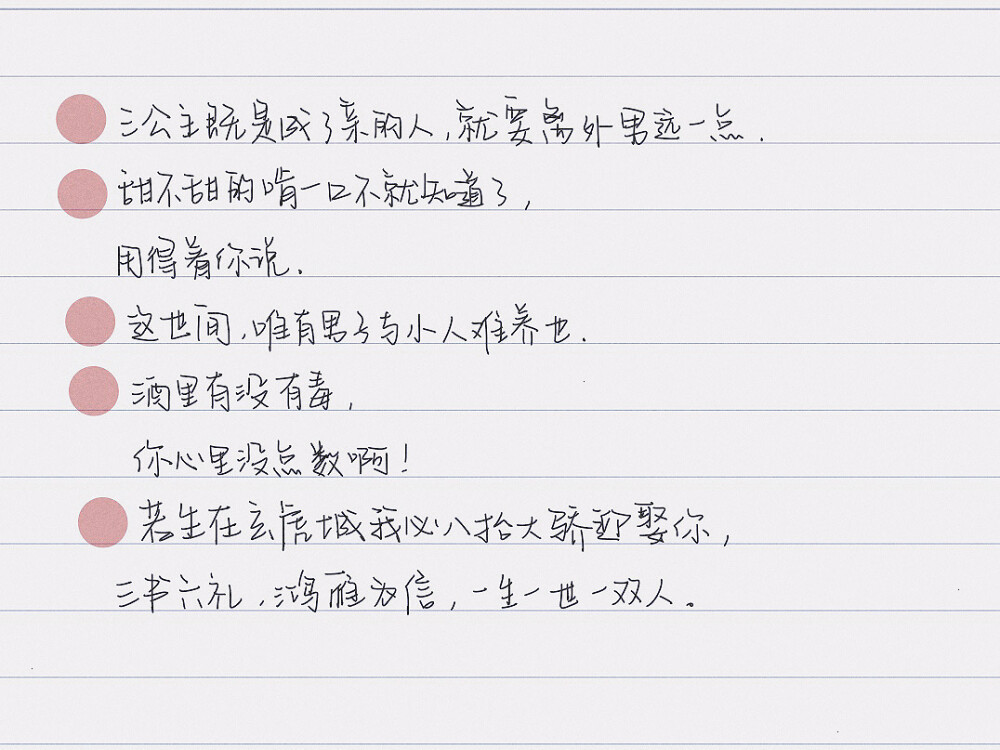 三公主既是成了亲的人,就要离外男远一点.
甜不甜的啃一口不就知道了,
用得着你说.
这世间,唯有男子与小人难养也.
酒里有没有毒,
你心里没点数啊!
若生在玄虎城我必八抬大骄迎娶你,
三书六礼,鸿雁为信,一生一世一双人。